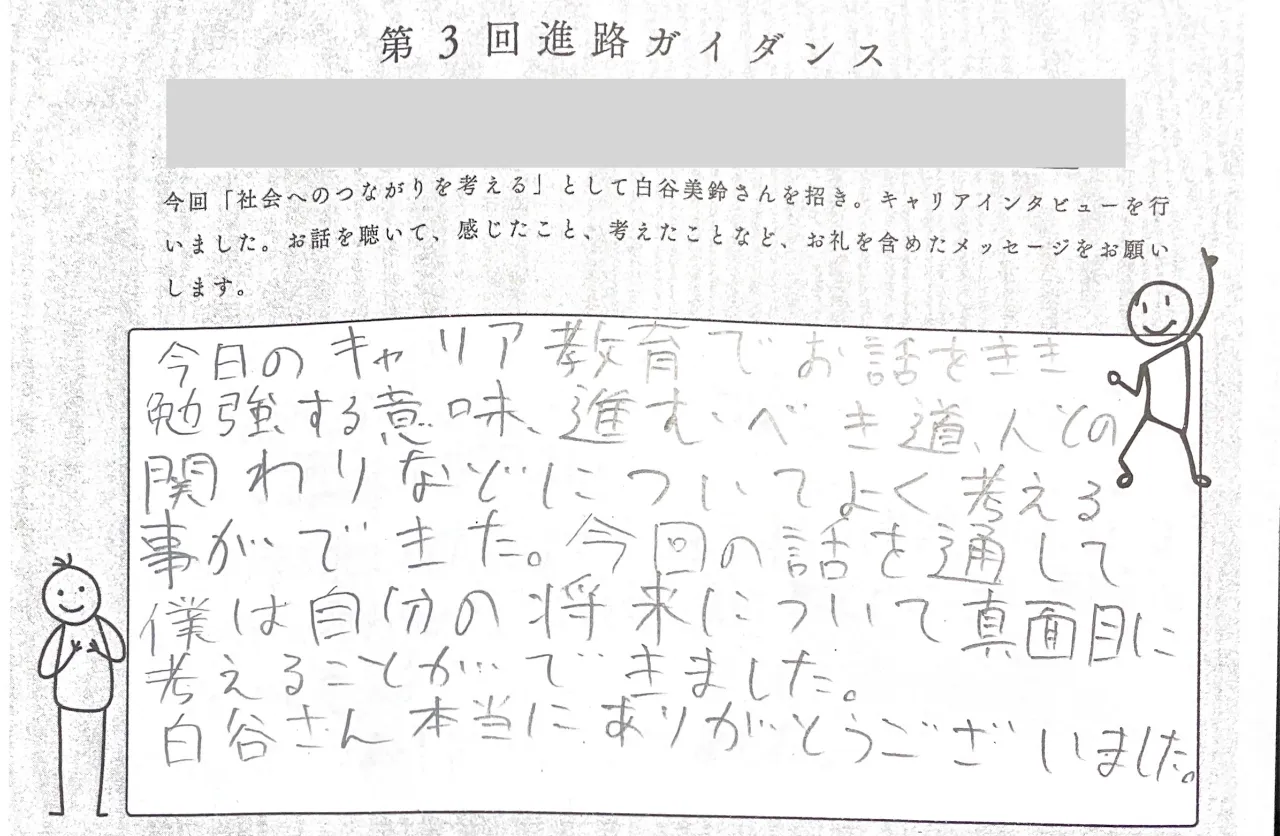 第3回進路ガイダンス
今回「社会へのつながりを考える」として白谷美鈴さんを招き。キャリアインタビューを行
いました。お話を聴いて、感じたこと、考えたことなど、お礼を含めたメッセージをお願い
します。
今日のキャリア教育でお話をきき
勉強する意味、進むべき道、人との
関わりなどについてよく考える
事ができた。今回の話を通して
僕は自分の将来について真面目に
考えることができました。
白谷さん本当にありがとうございました。